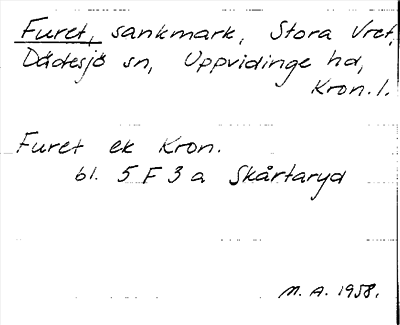 Furet, sankmark, Stora Vret,
Dädesjö sn, Uppvidinge hd,
Kron. l.
Furet ek Kron.
bl. 5 F 3 a Skårtaryd
M. A. 1958.